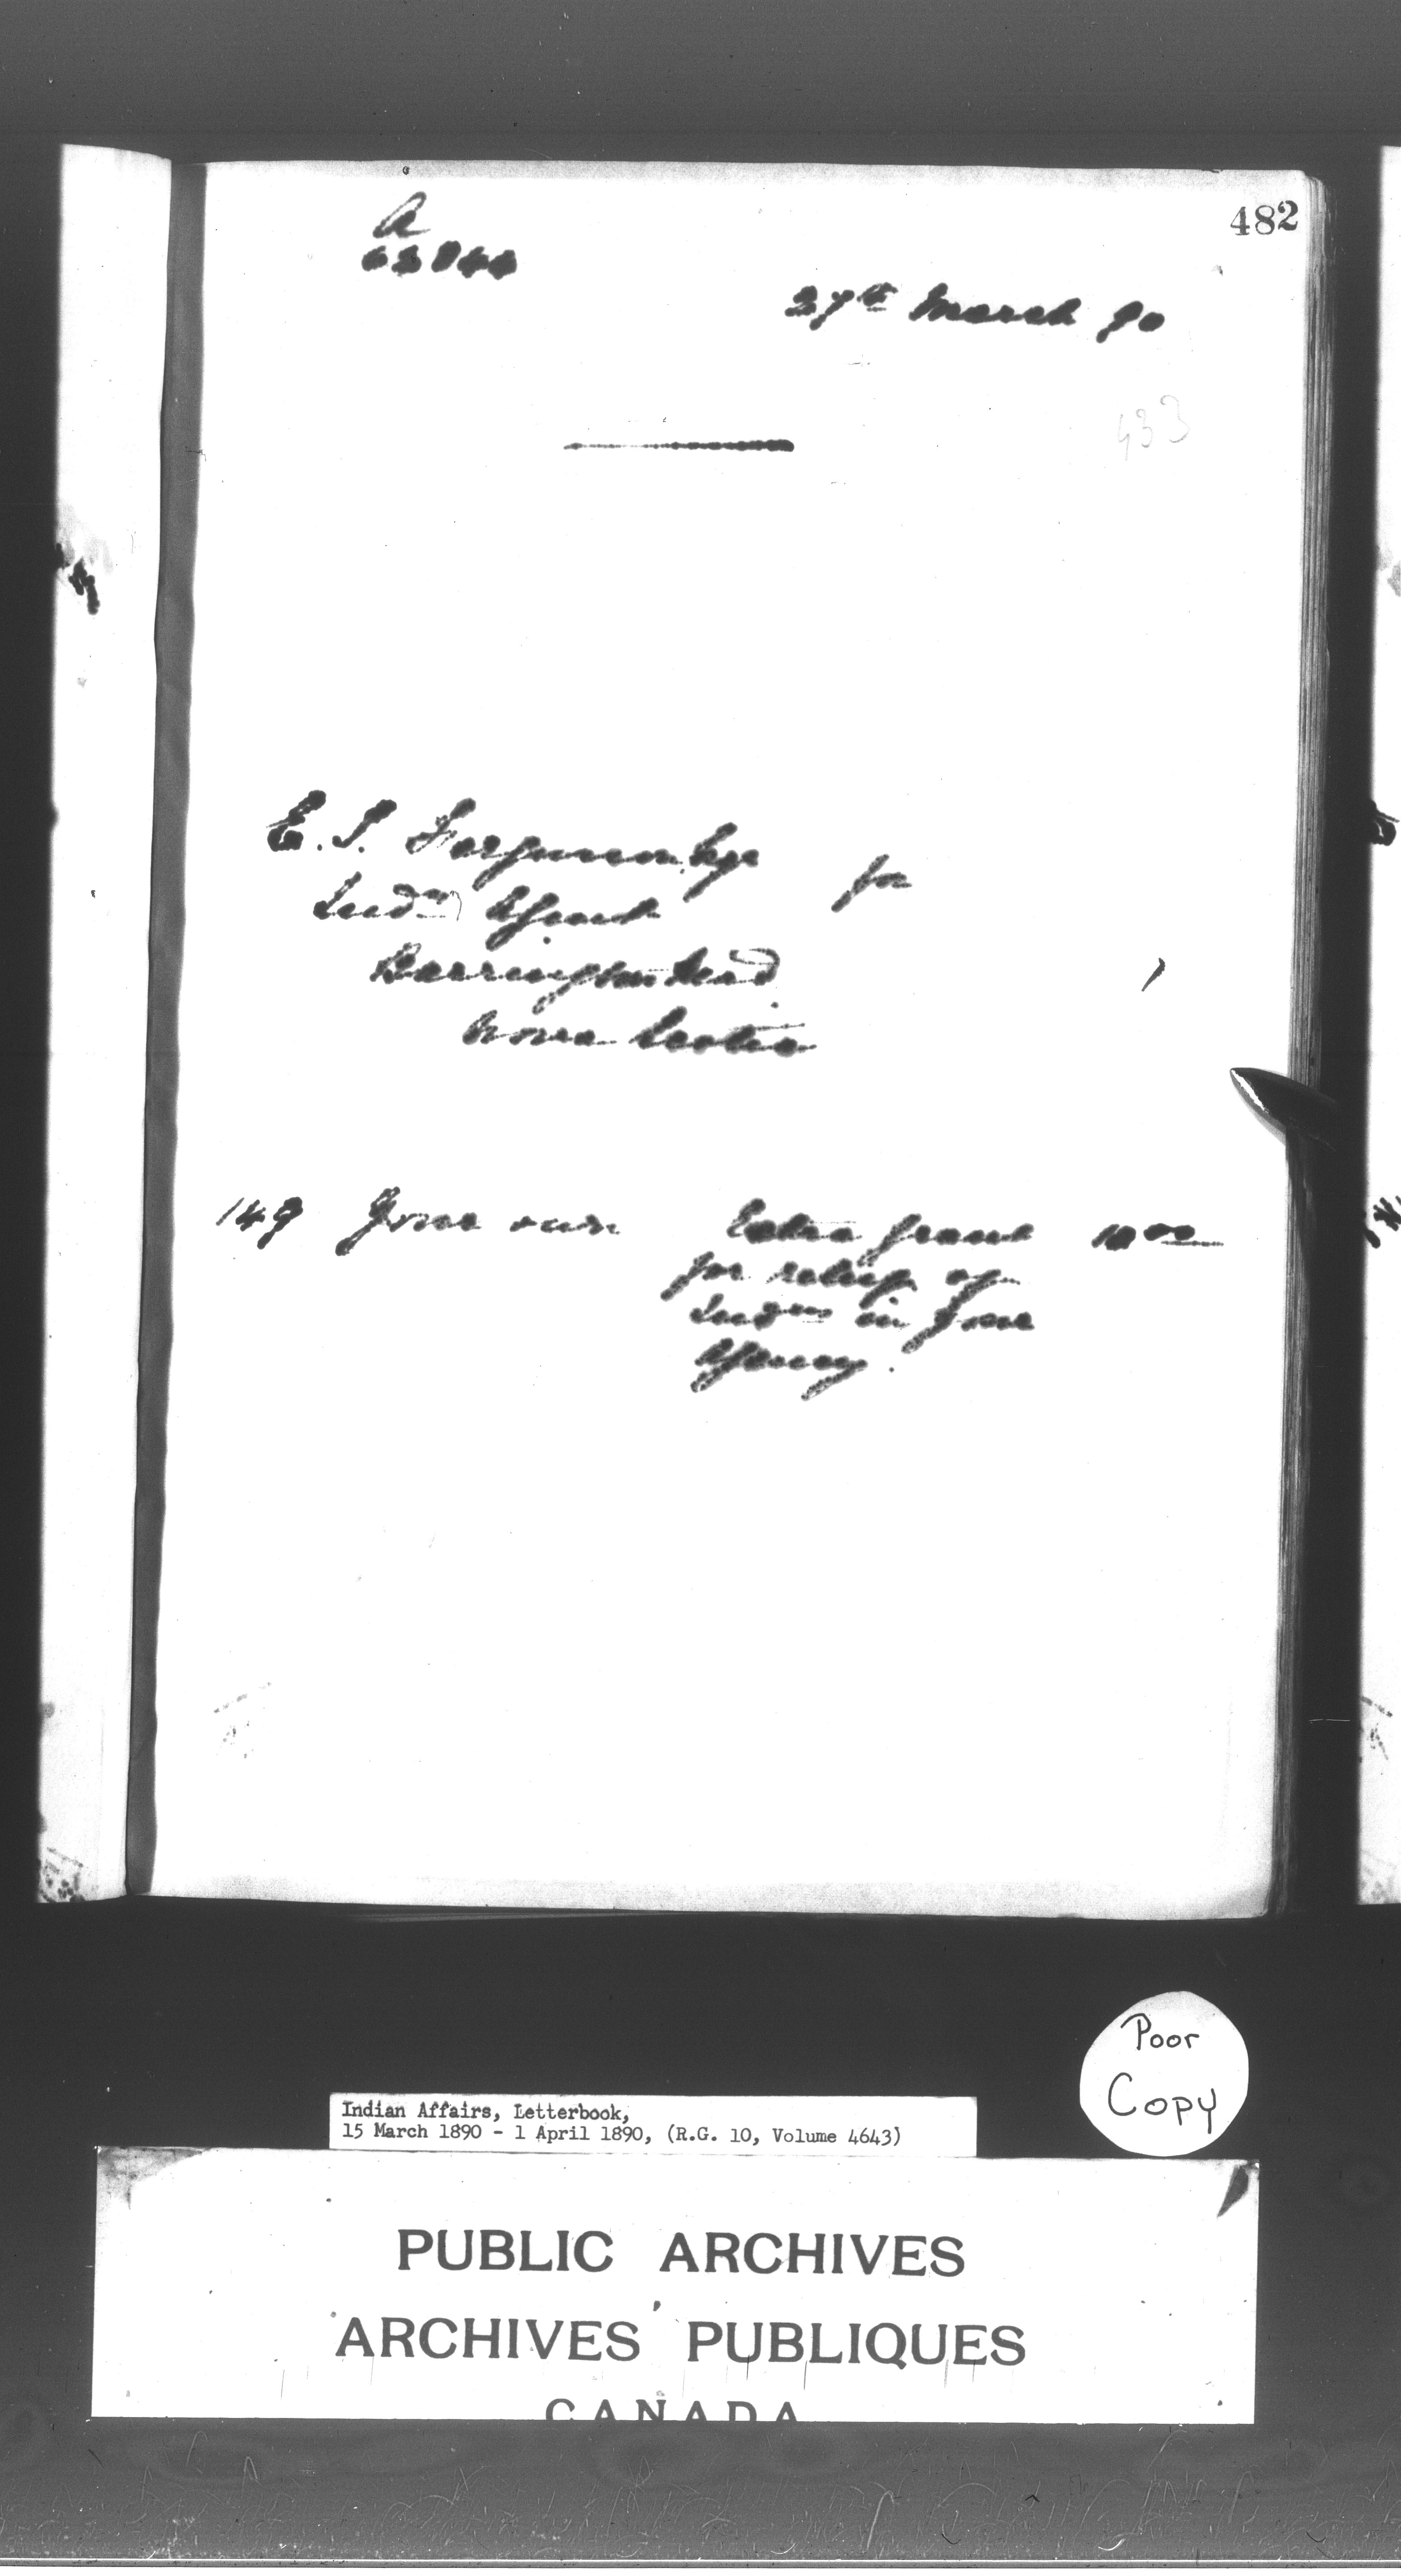 482
A
27th March 90
433
E. S. Ferguson Esqr
Indn Agent
for
Barrington Head
Nova Scotia
149 Your own Extra grant 10 00
for relief of
Indns in your
Agency.
Poor
Copy
Indian Affairs, Letterbook,
15 March 1890 - 1 April 1890, (R.G. 10, Volume 4643)
PUBLIC ARCHIVES
ARCHIVES PUBLIQUES
CANADA